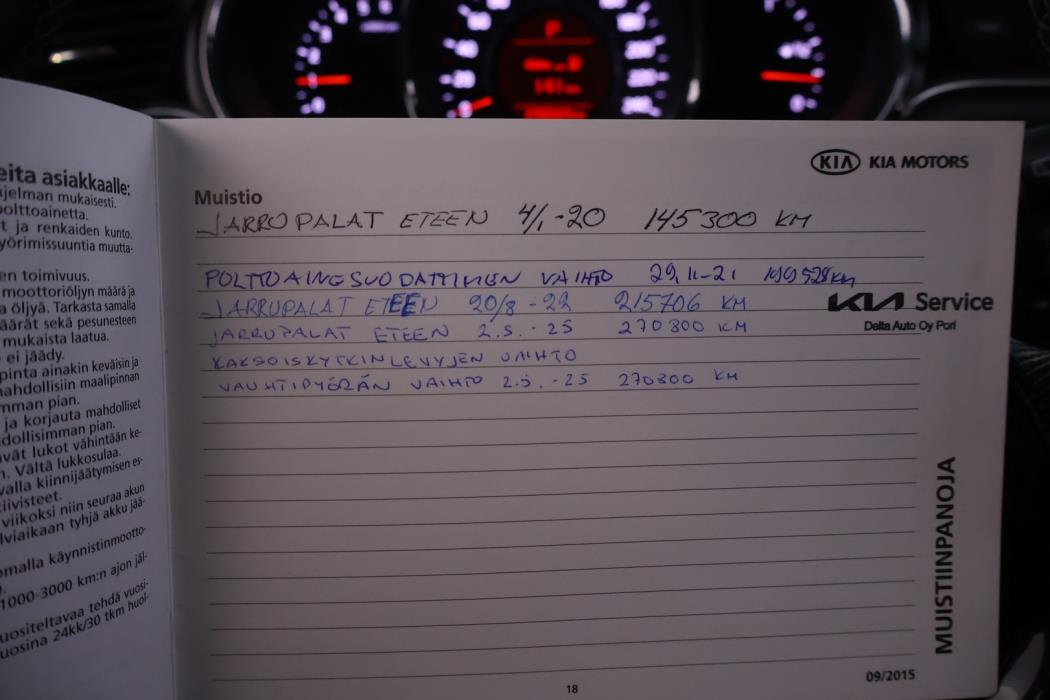 P
KIA KIA MOTORS
Muistio
JARRUPALAT ETEEN 4/1.-20 145300 KM
POLTTOAINESUODATTIMEN VAIHTO 29.11-21 199528KM
JARRUPALAT ETEEN 20/8-22 215706 KM
KIA Service
Delta Auto Oy Pori
JARRUPALAT ETEEN 2.5.-25 270300 KM
KAKSOISKYTKINLEVYJEN VAIHTO
VAUHTIPYÖRÄN VAIHTO 2.5.-25 270300 KM
MUISTIINPANOJA
09/2015
18
eita asiakkaalle:
jelman mukaisesti.
polttoainetta.
t ja renkaiden kunto.
yörimissuuntia muutta-
en toimivuus.
moottoriöljyn määrä ja
a öljyä. Tarkasta samalla
äärät sekä pesunesteen
mukaista laatua.
ei jäädy.
pinta ainakin keväisin ja
nahdollisiin maalipinnan
mman pian.
ja korjauta mahdolliset
dollisimman pian.
vät lukot vähintään ke-
n. Vältä lukkosulaa.
valla kiinnijäätymisen es-
tiivisteet.
viikoksi niin seuraa akun
lviaikaan tyhjä akku jää-
omalla käynnistinmootto-
1000-3000 km:n ajon jäl-
uositeltavaa tehdä vuosi-
uosina 24kk/30 tkm huol-